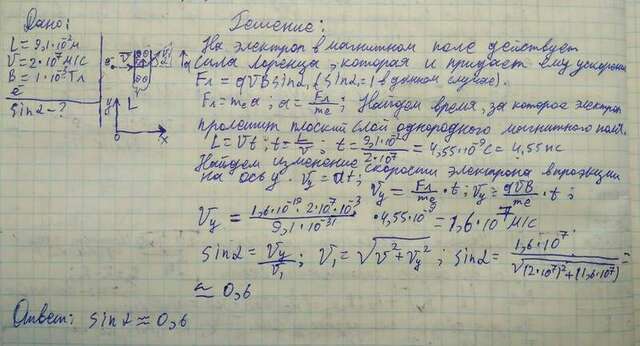 Дано:
L = 9,1·10⁻² м
V = 2·10⁷ м/с
B = 1·10⁻³ Тл
e⁻
sin2 - ?
y
L
0
x
Решение:
На электрон в магнитном поле действует
сила лоренца, которая и придает ему ускорение
Fл = qVB sin2, (sin2 = 1 в данном случае).
Fл = mea; a = Fл/me; Найдем время, за которое электрон
пролетит плоский слой однородного магнитного поля.
L = Vt; t = L/V; t = 9,1·10⁻²/2·10⁷ = 4,55·10⁻⁹ с = 4,55 нс
Найдем изменение скорости электрона в проэкции
на ось y. Vy = at; Vy = Fл/me · t; Vy = qVB/me · t;
Vy = 1,6·10⁻¹⁹·2·10⁷·10⁻³/9,1·10⁻³¹ · 4,55·10⁻⁹ = 1,6·10⁷ м/с
sin2 = Vy/V₁; V₁ = √V² + Vy²; sin2 = 1,6·10⁷/√(2·10⁷)² + (1,6·10⁷)² =
≈ 0,6
Ответ: sin2 ≈ 0,6